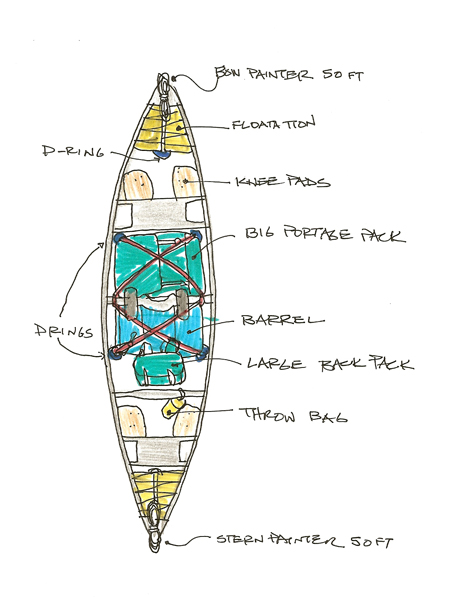 BOW PAINTER 50 FT
FLOATATION
D-RING
KNEE PADS
BIG PORTAGE PACK
DRINGS
BARREL
LARGE BACK PACK
THROW BAG
STERN PAINTER 50 FT